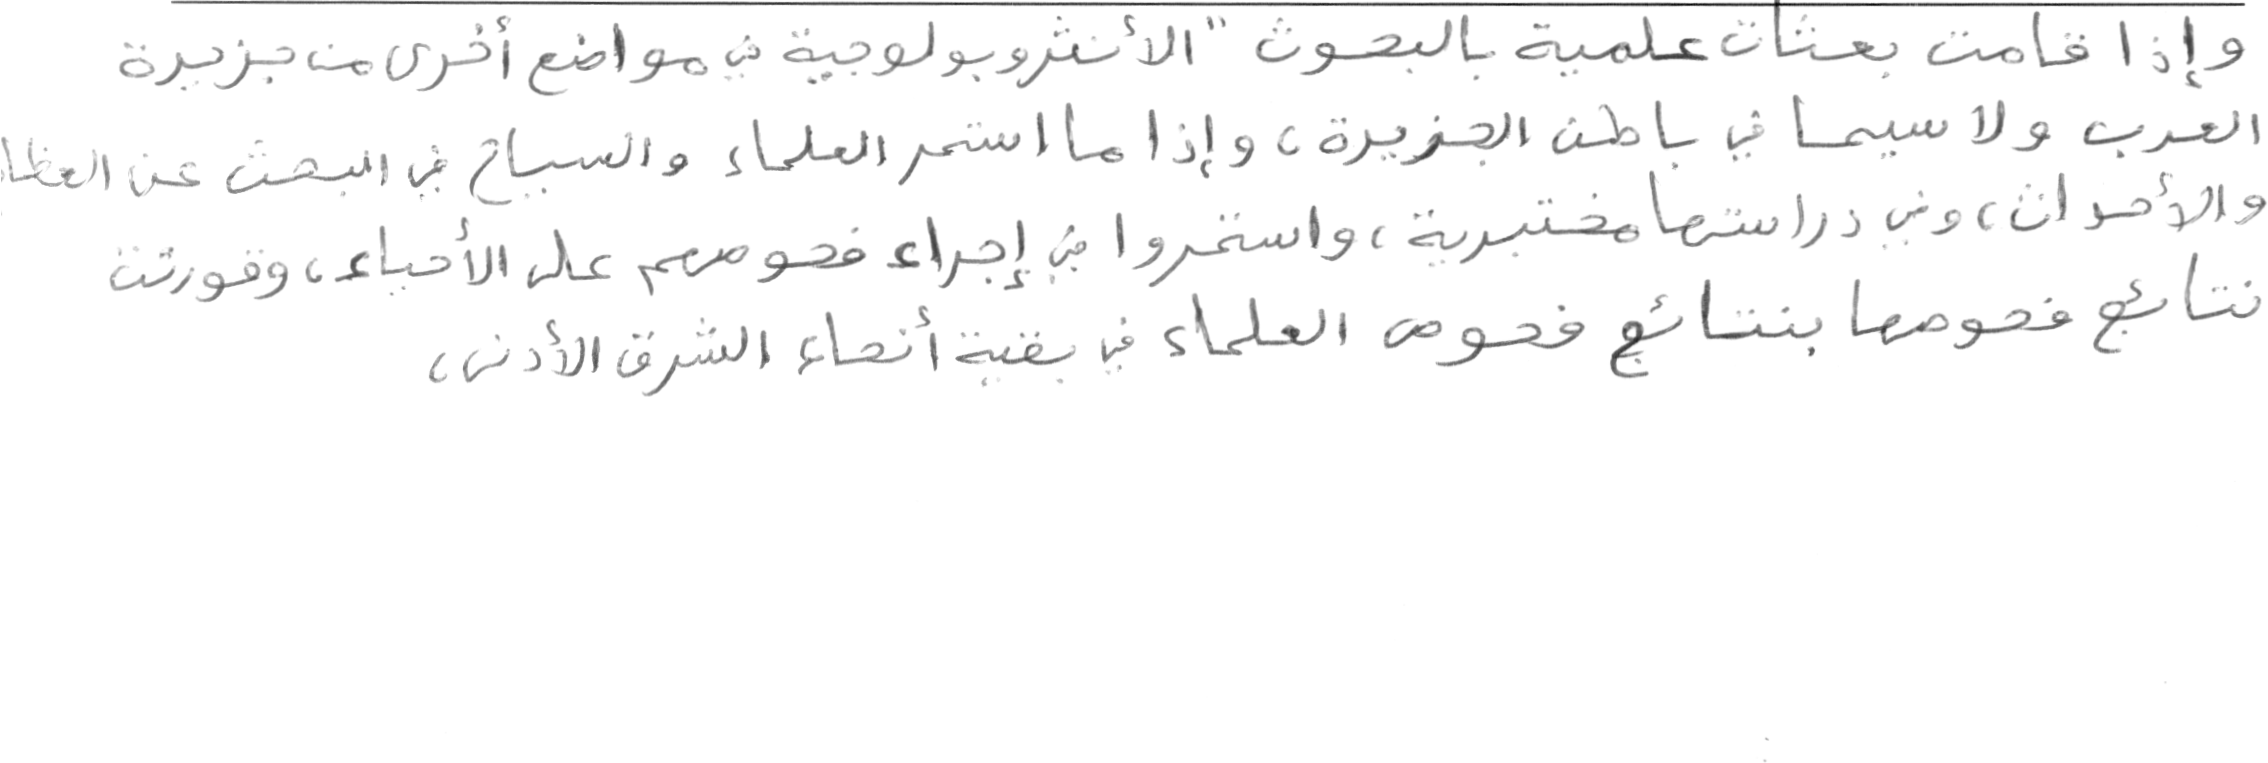 وإذا قامت بعثات علمية بالبحوث "الأنثروبولوجية في مواضع أخرى من جزيرة
العرب ولا سيما في باطن الجزيرة، وإذا ما استمر العلماء والسياح في البحث عن العظا
والأحداث، وفي دراستها مختبرية، واستمروا في إجراء فحوصهم على الأحياء، وقورنت
نتائج فحوصها بنتائج فحوص العلماء في بقية أنحاء الشرق الأدنى،